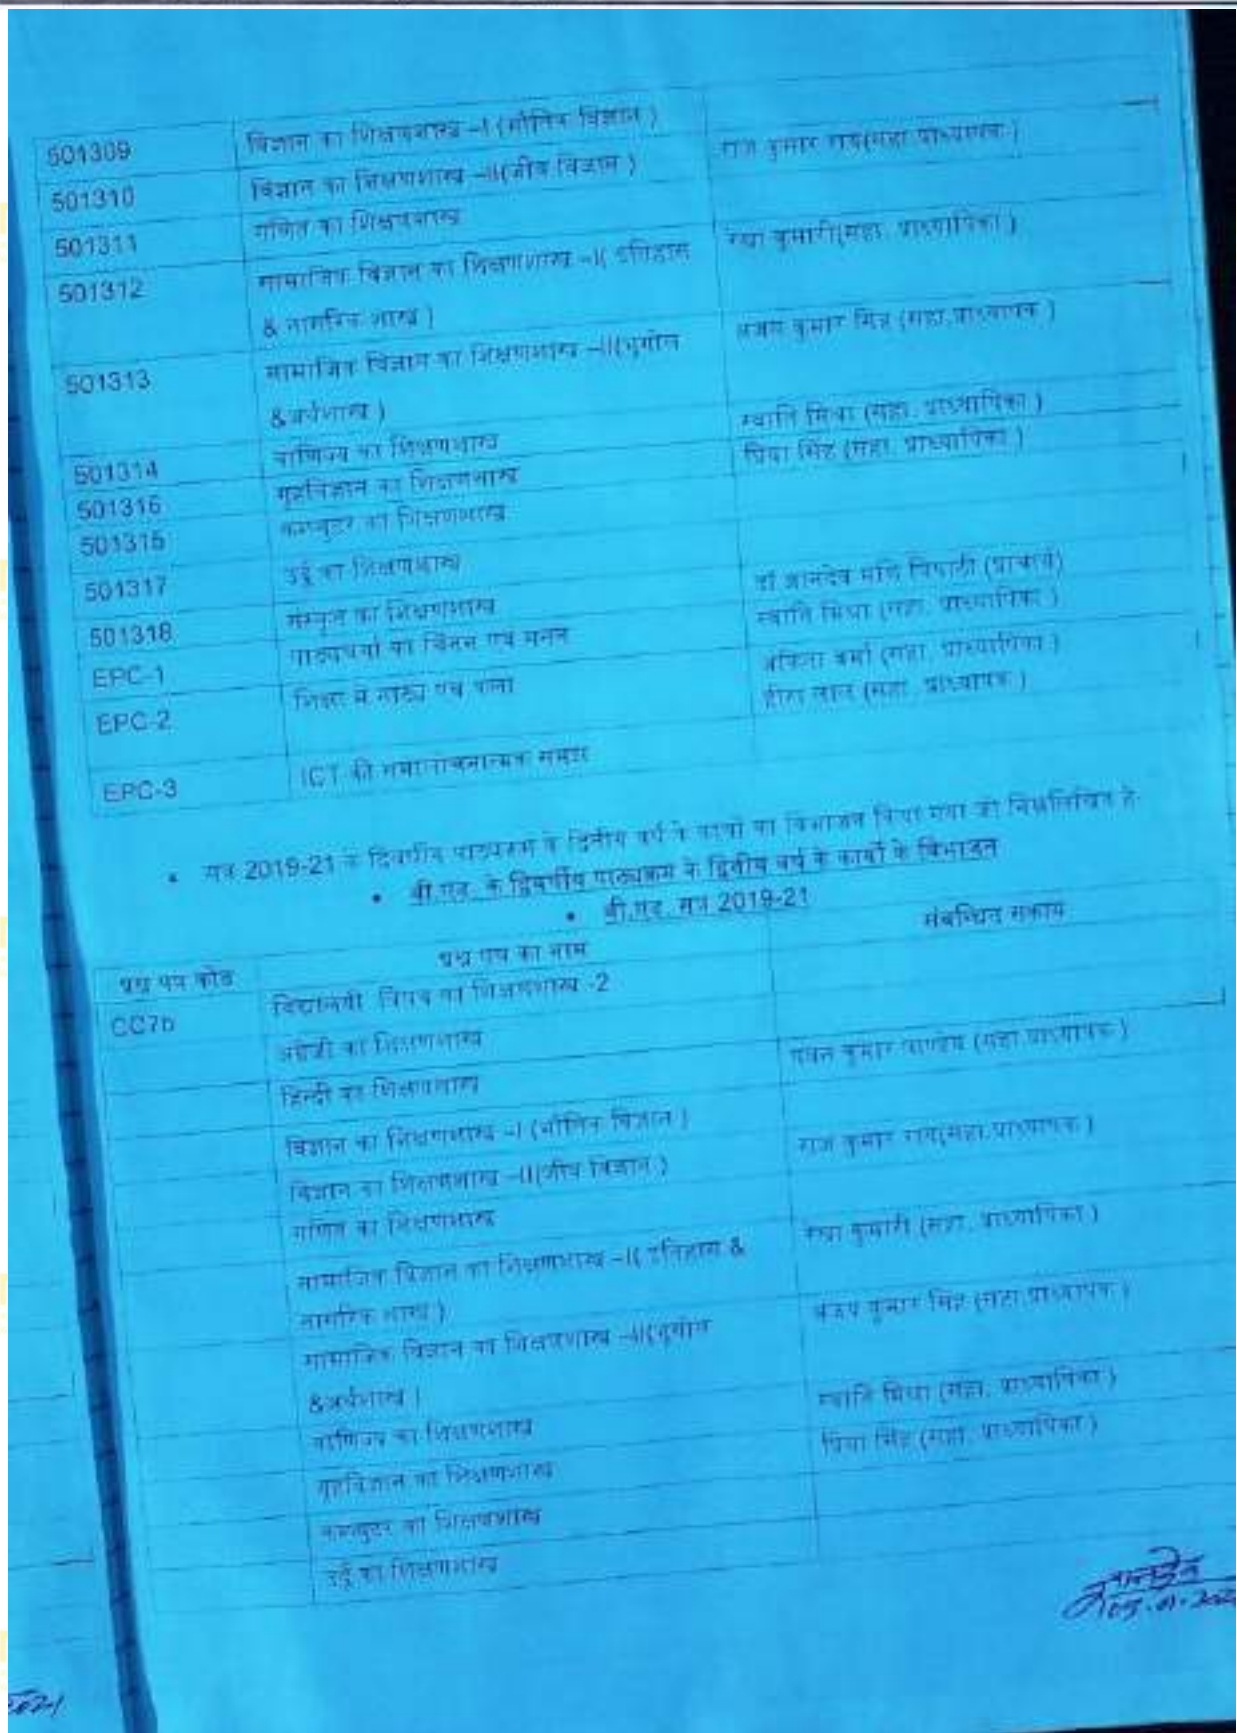 501309 विज्ञान का शिक्षणशास्त्र –I (भौतिक विज्ञान )
501310 विज्ञान का शिक्षणशास्त्र –II(जीव विज्ञान ) राज कुमार राय(सहा.प्राध्यापक )
501311 गणित का शिक्षणशास्त्र
501312 सामाजिक विज्ञान का शिक्षणशास्त्र –I( इतिहास कुमारी(सहा. प्राध्यापिका )
& नागरिक शास्त्र )
501313 सामाजिक विज्ञान का शिक्षणशास्त्र –II(भूगोल कुमार (सहा.प्राध्यापक )
&अर्थशास्त्र )
501314 वाणिज्य का शिक्षणशास्त्र स्वाति मिश्रा (सहा. प्राध्यापिका )
501316 गृहविज्ञान का शिक्षणशास्त्र प्रिया सिंह (सहा. प्राध्यापिका )
501315 कम्प्युटर का शिक्षणशास्त्र
501317 उर्दू का शिक्षणशास्त्र
501318 संस्कृत का शिक्षणशास्त्र डॉ ज्ञानदेव मणि त्रिपाठी (प्राचार्य)
EPC-1 पाठ्यचर्या का चिंतन एवं मनन स्वाति मिश्रा (सहा. प्राध्यापिका )
EPC-2 शिक्षा में नाट्य एवं कला वर्मा (सहा. प्राध्यापिका )
लाल (सहा. प्राध्यापक )
EPC-3 ICT की समालोचनात्मक समझ
• सत्र 2019-21 के द्विवर्षीय पाठ्यक्रम के द्वितीय वर्ष के कार्यो का विभाजन किया गया जो निम्नलिखित है-
• बी.एड. के द्विवर्षीय पाठ्यक्रम के द्वितीय वर्ष के कार्यो के विभाजन
• बी.एड. सत्र 2019-21
प्रश्न पत्र कोड प्रश्न पत्र का नाम संबन्धित संकाय
CC7b विद्यालयी विषय का शिक्षणशास्त्र -2
अंग्रेजी का शिक्षणशास्त्र
हिन्दी का शिक्षणशास्त्र पवन कुमार पाण्डेय (सहा.प्राध्यापक )
विज्ञान का शिक्षणशास्त्र –I (भौतिक विज्ञान )
विज्ञान का शिक्षणशास्त्र –II(जीव विज्ञान ) राज कुमार राय(सहा.प्राध्यापक )
गणित का शिक्षणशास्त्र
सामाजिक विज्ञान का शिक्षणशास्त्र –I( इतिहास & कुमारी (सहा. प्राध्यापिका )
नागरिक शास्त्र )
सामाजिक विज्ञान का शिक्षणशास्त्र –II(भूगोल कुमार (सहा.प्राध्यापक )
&अर्थशास्त्र )
वाणिज्य का शिक्षणशास्त्र स्वाति मिश्रा (सहा. प्राध्यापिका )
गृहविज्ञान का शिक्षणशास्त्र प्रिया सिंह (सहा. प्राध्यापिका )
कम्प्युटर का शिक्षणशास्त्र
उर्दू का शिक्षणशास्त्र